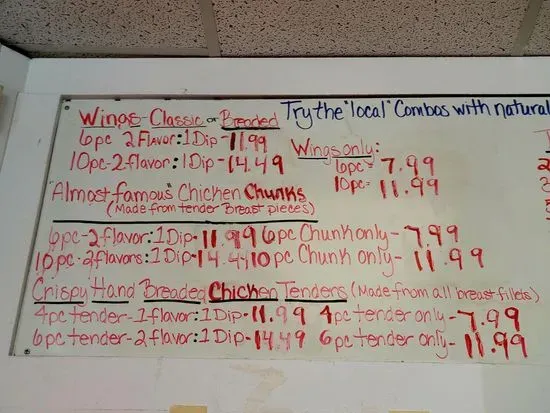 Wings-Classic or Breaded
Try the "local" Combos with natural
6pc 2 Flavor:1 Dip-11.99
10pc-2-flavor:1 Dip-14.49
Wings only:
6pc= 7.99
10pc= 11.99
"Almost famous" Chicken Chunks
(Made from tender Breast pieces)
6pc-2-flavor:1 Dip-11.99 6pc Chunk only- 7.99
10pc-2 flavors:1 Dip-14.49 10pc Chunk only- 11.99
Crispy Hand Breaded Chicken Tenders (Made from all breast fillets)
4pc tender-1-flavor:1 Dip-11.99 4pc tender only-7.99
6pc tender-2 flavor:1 Dip-14.49 6pc tender only-11.99